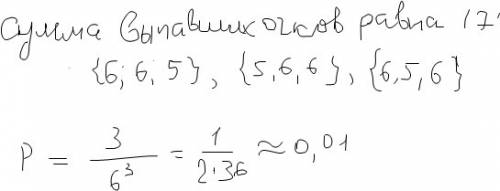 Сумма выпавших очков равна 17:
{6; 6, 5}, {5, 6, 6}, {6, 5, 6}
P = 3/6³ = 1/2·36 ≈ 0,01